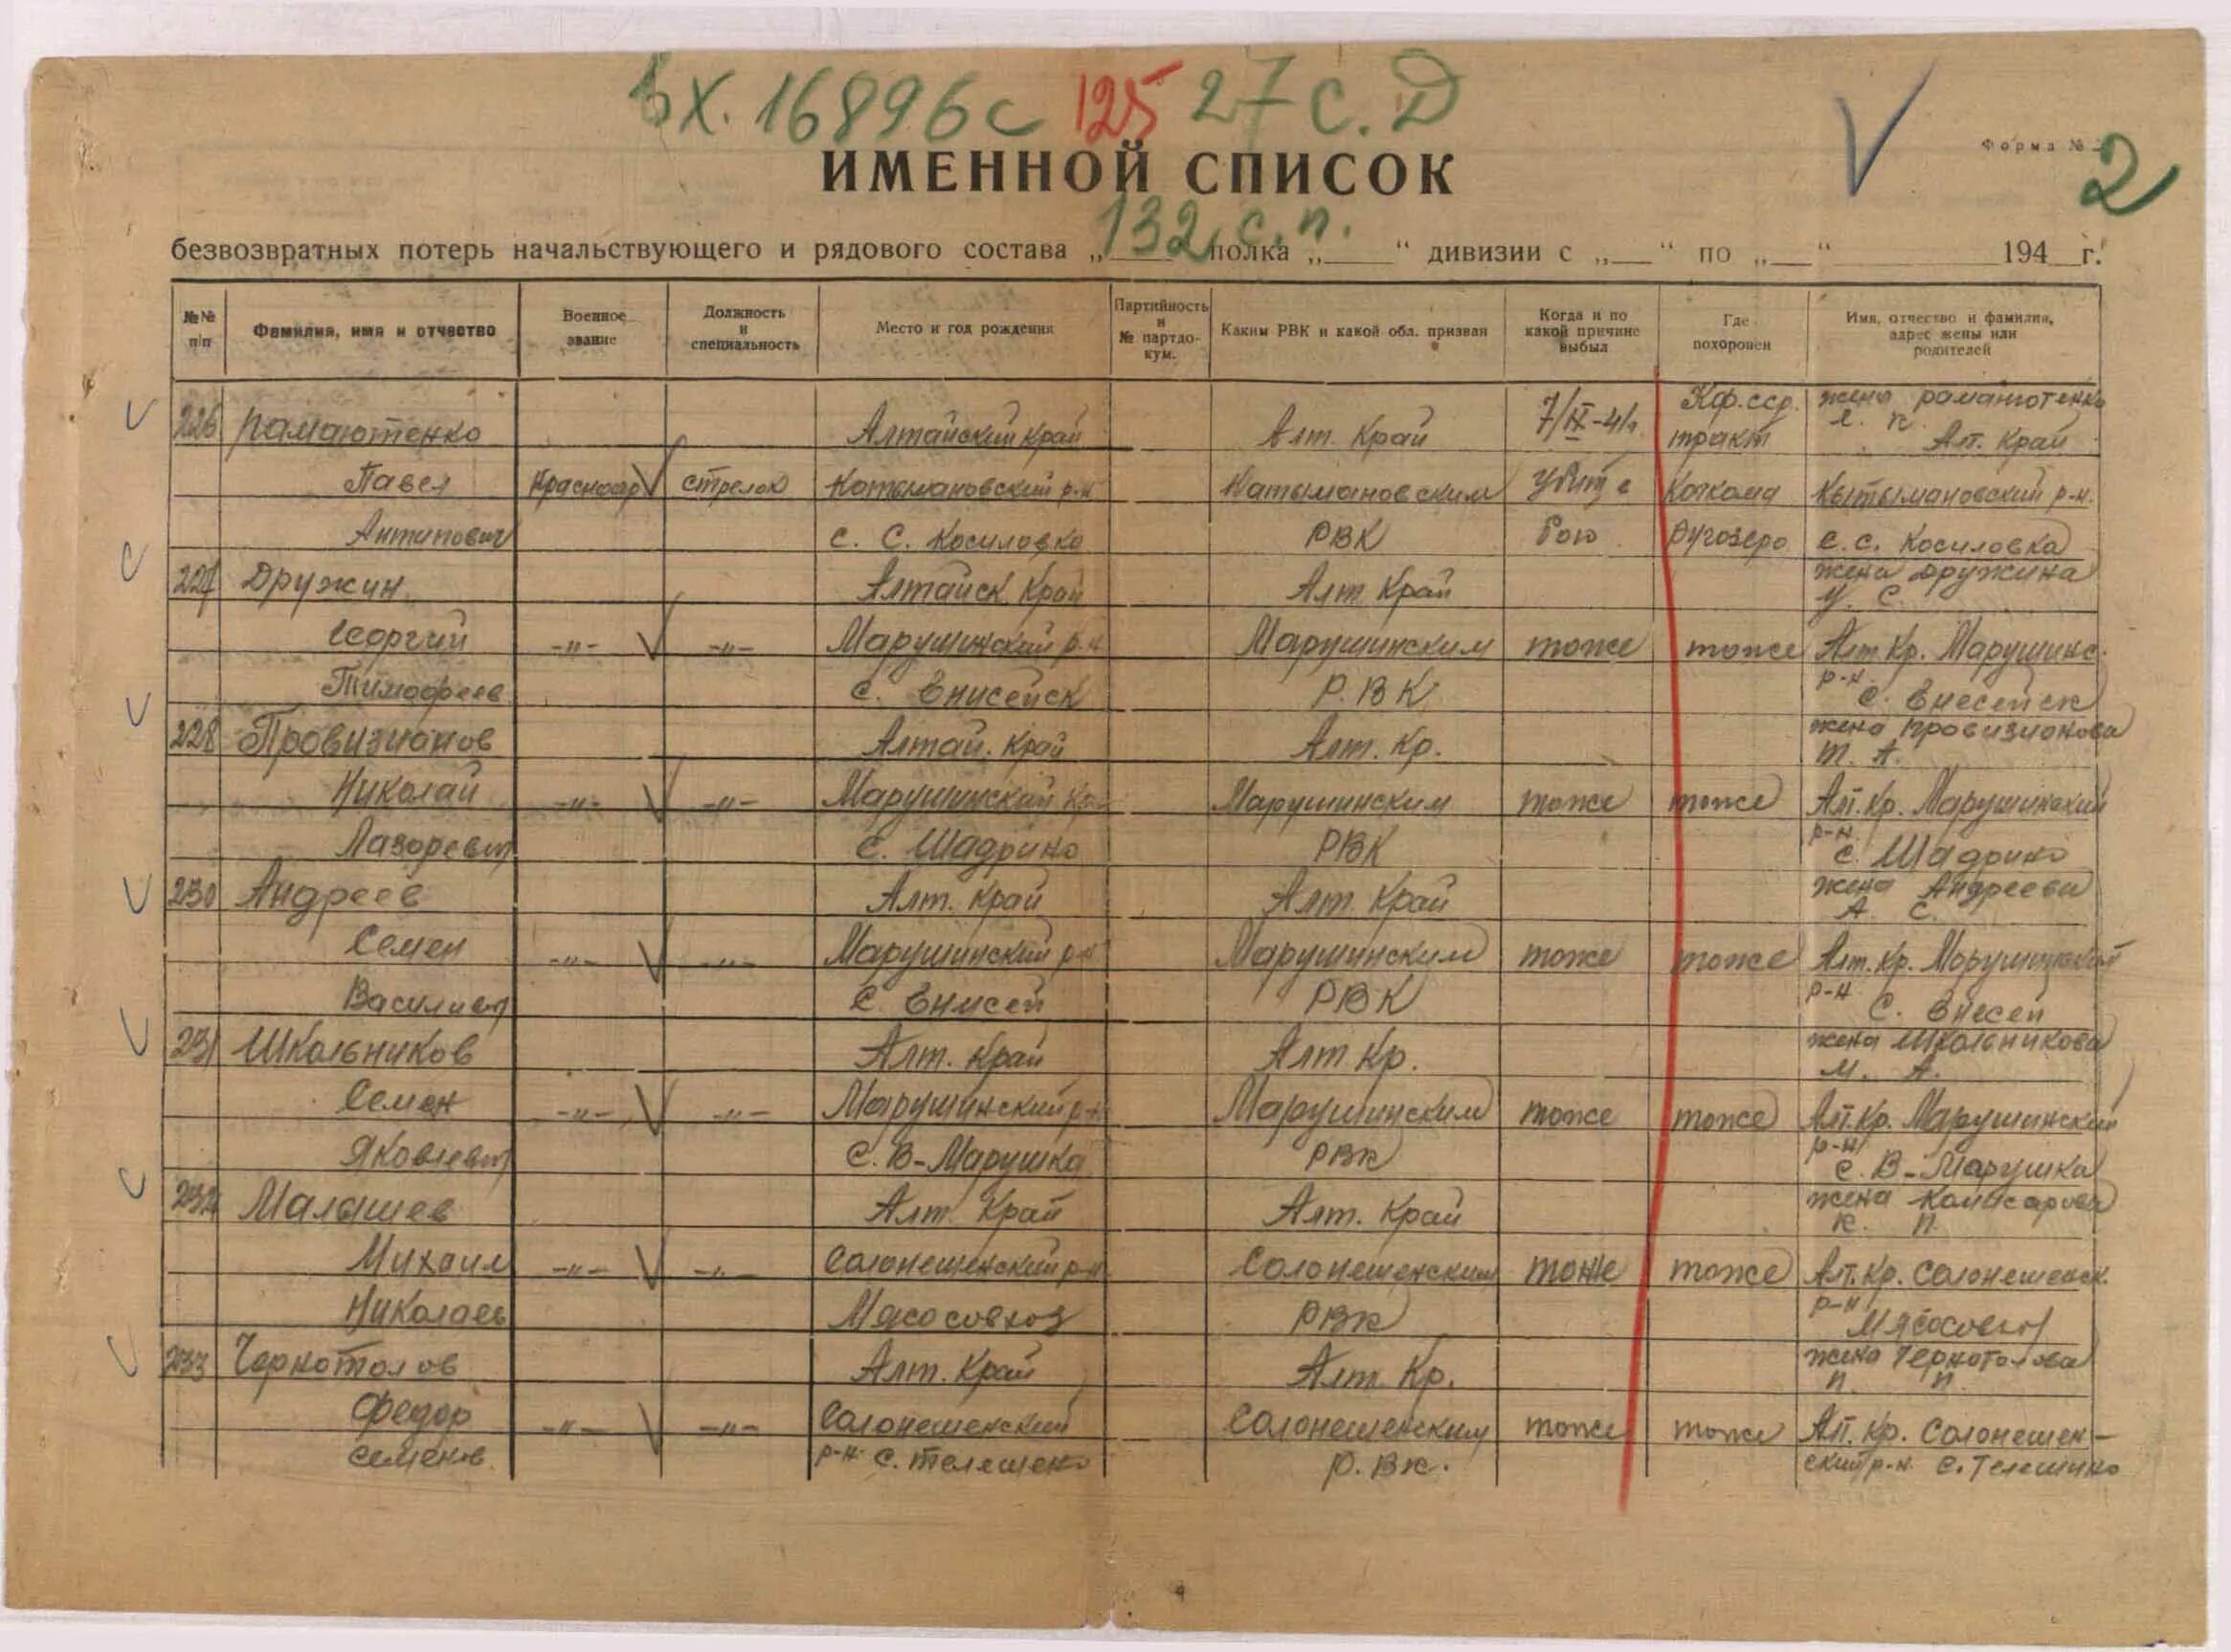 Вх. 16896с 125 27 С.Д
ИМЕННОЙ СПИСОК
Форма №
2
132 с.п.
безвозвратных потерь начальствующего и рядового состава „___ полка „___“ дивизии с „__“ по „__“ ______ 194__г.
№№ п/п Фамилия, имя и отчество Военное звание Должность и специальность Место и год рождения Партийность и № партдокум. Каким РВК и какой обл. призван Когда и по какой причине выбыл Где похоронен Имя, отчество и фамилия, адрес жены или родителей
226 Рамаютенко Алтайский Край Алт. Край 7/IX-41г. Кф.сср. тракт жена Рамаютенко Е. К. Ал. Край
Павел Красноар стрелок Котмановский р-н Катымановским убит в Кочкома Кытымановский р-н.
Антипович с. С. Косиловка РВК бою Ругозеро с.с. Косиловка
227 Дружин Алтайск Край Алт Край жена Дружина У. С.
Георгий -"- -"- Марушинский р-н Марушинским тоже тоже Алт Кр. Марушинс. р-н.
Тимофеев с. Енисейск Р.ВК с. Енесейск
228 Провизионов Алтай. Край Алт. Кр. жена Провизионова Т. А.
Николай -"- -"- Марушинский Марушинским тоже тоже Ал. Кр. Марушинский р-н.
Лазоревич с. Шадрино РВК с. Шадрино
230 Андреев Алт. Край Алт. Край жена Андреева А. С.
Семен -"- -"- Марушинский р-н Марушинским тоже тоже Алт. Кр. Марушинский р-н
Василич с. Енисей РВК с. Енесей
231 Школьников Алт. Край Алт Кр. жена Школьникова М. А.
Семен -"- -"- Марушинский р-н Марушинским тоже тоже Ал. Кр. Марушинский р-н
Яковлевич с. В-Марушка РВК с. В-Марушка
232 Малышев Алт. Край Алт. Край жена Комисарова К. П.
Михаил -"- -"- Солонешенский р-н Солонешенским тоже тоже Ал. Кр. Солонешенск. р-н
Николаев Мясосовхоз РВК Мясосовхоз
233 Чернотолов Алт. Край Алт Кр. жена Чернотолова П. П.
Федор -"- -"- Солонешенский Солонешенским тоже тоже Ал. Кр. Солонешен-
Семенов. р-н с. Телешено Р.ВК. ский р-н. с. Телешино